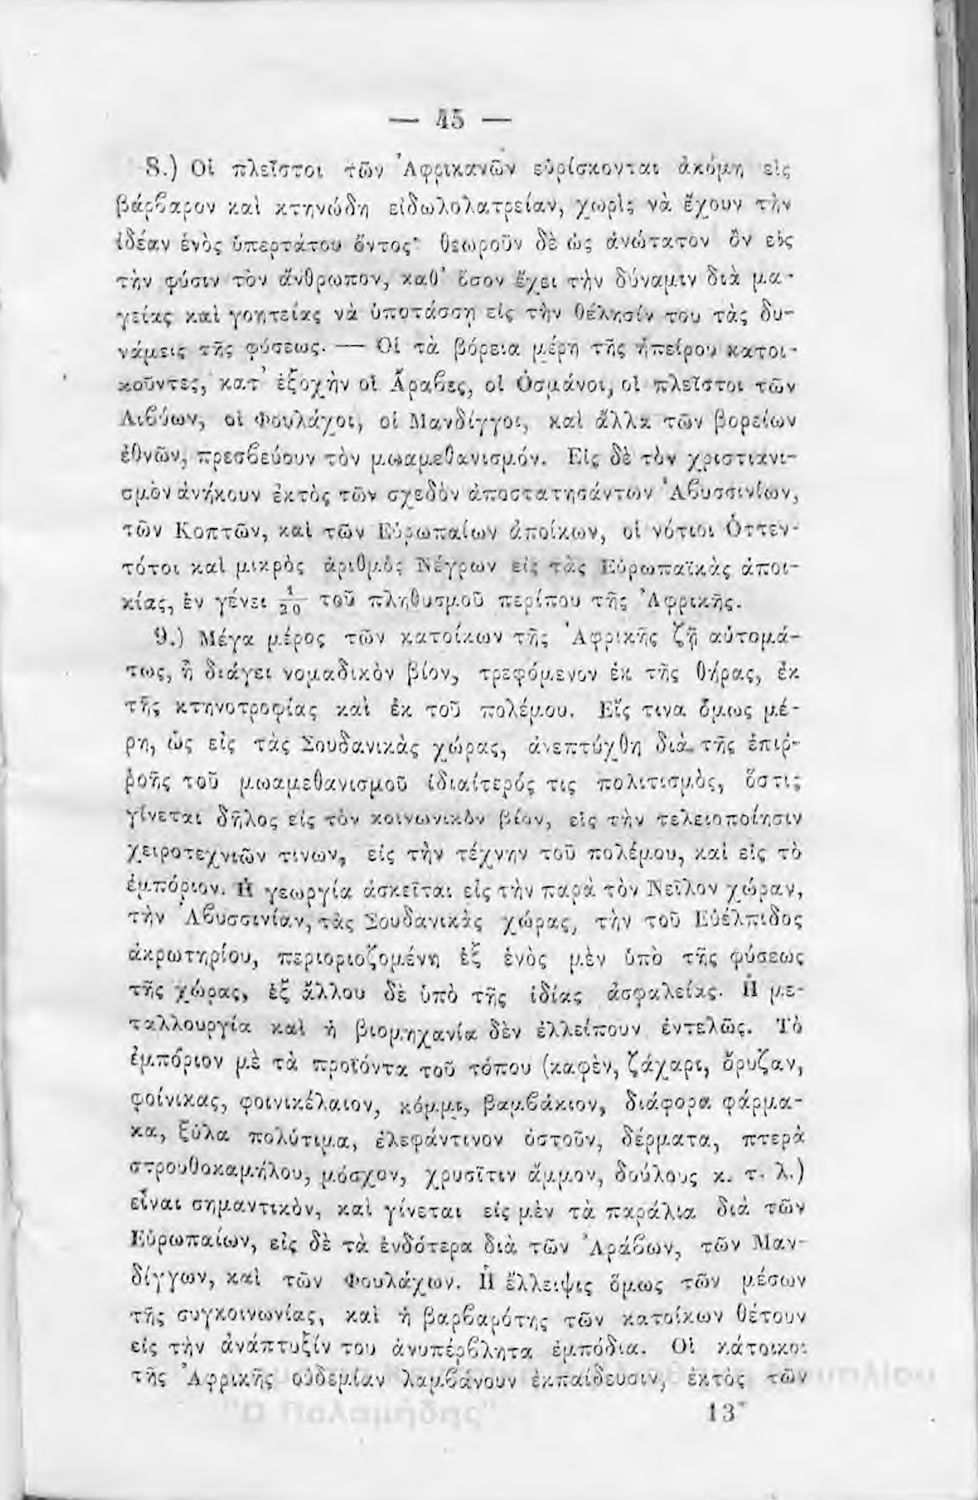 — 45 —
8.) Οἱ πλεῖστοι τῶν Ἀφρικανῶν εὑρίσκονται ἀκόμη εἰς
βάρβαρον καὶ κτηνώδη εἰδωλολατρείαν, χωρὶς νὰ ἔχουν τὴν
ἰδέαν ἑνὸς ὑπερτάτου ὄντος· θεωροῦν δὲ ὡς ἀνώτατον ὂν εἰς
τὴν φύσιν τὸν ἄνθρωπον, καθ' ὅσον ἔχει τὴν δύναμιν διὰ μα-
γείας καὶ γοητείας νὰ ὑποτάσσῃ εἰς τὴν θέλησίν του τὰς δυ-
νάμεις τῆς φύσεως. — Οἱ τὰ βόρεια μέρη τῆς ἠπείρου κατοι-
κοῦντες, κατ' ἐξοχὴν οἱ Ἄραβες, οἱ Ὀσμάνοι, οἱ πλεῖστοι τῶν
Λιβύων, οἱ Φουλάχοι, οἱ Μανδίγγοι, καὶ ἄλλα τῶν βορείων
ἐθνῶν, πρεσβεύουν τὸν μωαμεθανισμόν. Εἰς δὲ τὸν χριστιανι-
σμὸν ἀνήκουν ἐκτὸς τῶν σχεδὸν ἀποστατησάντων Ἀβυσσινίων,
τῶν Κοπτῶν, καὶ τῶν Εὐρωπαίων ἀποίκων, οἱ νότιοι Ὀττεν-
τότοι καὶ μικρὸς ἀριθμὸς Νέγρων εἰς τὰς Εὐρωπαϊκὰς ἀποι-
κίας, ἐν γένει 1/20 τοῦ πληθυσμοῦ περίπου τῆς Ἀφρικῆς.
9.) Μέγα μέρος τῶν κατοίκων τῆς Ἀφρικῆς ζῇ αὐτομά-
τως, ἢ διάγει νομαδικὸν βίον, τρεφόμενον ἐκ τῆς θήρας, ἐκ
τῆς κτηνοτροφίας καὶ ἐκ τοῦ πολέμου. Εἴς τινα ὅμως μέ-
ρη, ὡς εἰς τὰς Σουδανικὰς χώρας, ἀνεπτύχθη διὰ τῆς ἐπιρ-
ροῆς τοῦ μωαμεθανισμοῦ ἰδιαίτερός τις πολιτισμός, ὅστις
γίνεται δῆλος εἰς τὸν κοινωνικὸν βίον, εἰς τὴν τελειοποίησιν
χειροτεχνιῶν τινων, εἰς τὴν τέχνην τοῦ πολέμου, καὶ εἰς τὸ
ἐμπόριον. Ἡ γεωργία ἀσκεῖται εἰς τὴν παρὰ τὸν Νεῖλον χώραν,
τὴν Ἀβυσσινίαν, τὰς Σουδανικὰς χώρας, τὴν τοῦ Εὐέλπιδος
ἀκρωτηρίου, περιοριοζομένη ἐξ ἑνὸς μὲν ὑπὸ τῆς φύσεως
τῆς χώρας, ἐξ ἄλλου δὲ ὑπὸ τῆς ἰδίας ἀσφαλείας. Ἡ με-
ταλλουργία καὶ ἡ βιομηχανία δὲν ἐλλείπουν ἐντελῶς. Τὸ
ἐμπόριον μὲ τὰ προϊόντα τοῦ τόπου (καφὲν, ζάχαρι, ὄρυζαν,
φοίνικας, φοινικέλαιον, κόμμι, βαμβάκιον, διάφορα φάρμα-
κα, ξύλα πολύτιμα, ἐλεφάντινον ὀστοῦν, δέρματα, πτερὰ
στρουθοκαμήλου, μόσχον, χρυσῖτιν ἄμμον, δούλους κ. τ. λ.)
εἶναι σημαντικὸν, καὶ γίνεται εἰς μὲν τὰ παράλια διὰ τῶν
Εὐρωπαίων, εἰς δὲ τὰ ἐνδότερα διὰ τῶν Ἀράβων, τῶν Μαν-
δίγγων, καὶ τῶν Φουλάχων. Ἡ ἔλλειψις ὅμως τῶν μέσων
τῆς συγκοινωνίας, καὶ ἡ βαρβαρότης τῶν κατοίκων θέτουν
εἰς τὴν ἀνάπτυξίν του ἀνυπέρβλητα ἐμπόδια. Οἱ κάτοικοι
τῆς Ἀφρικῆς οὐδεμίαν λαμβάνουν ἐκπαίδευσιν, ἐκτὸς τῶν
"Ο Παλαμήδης"
13*